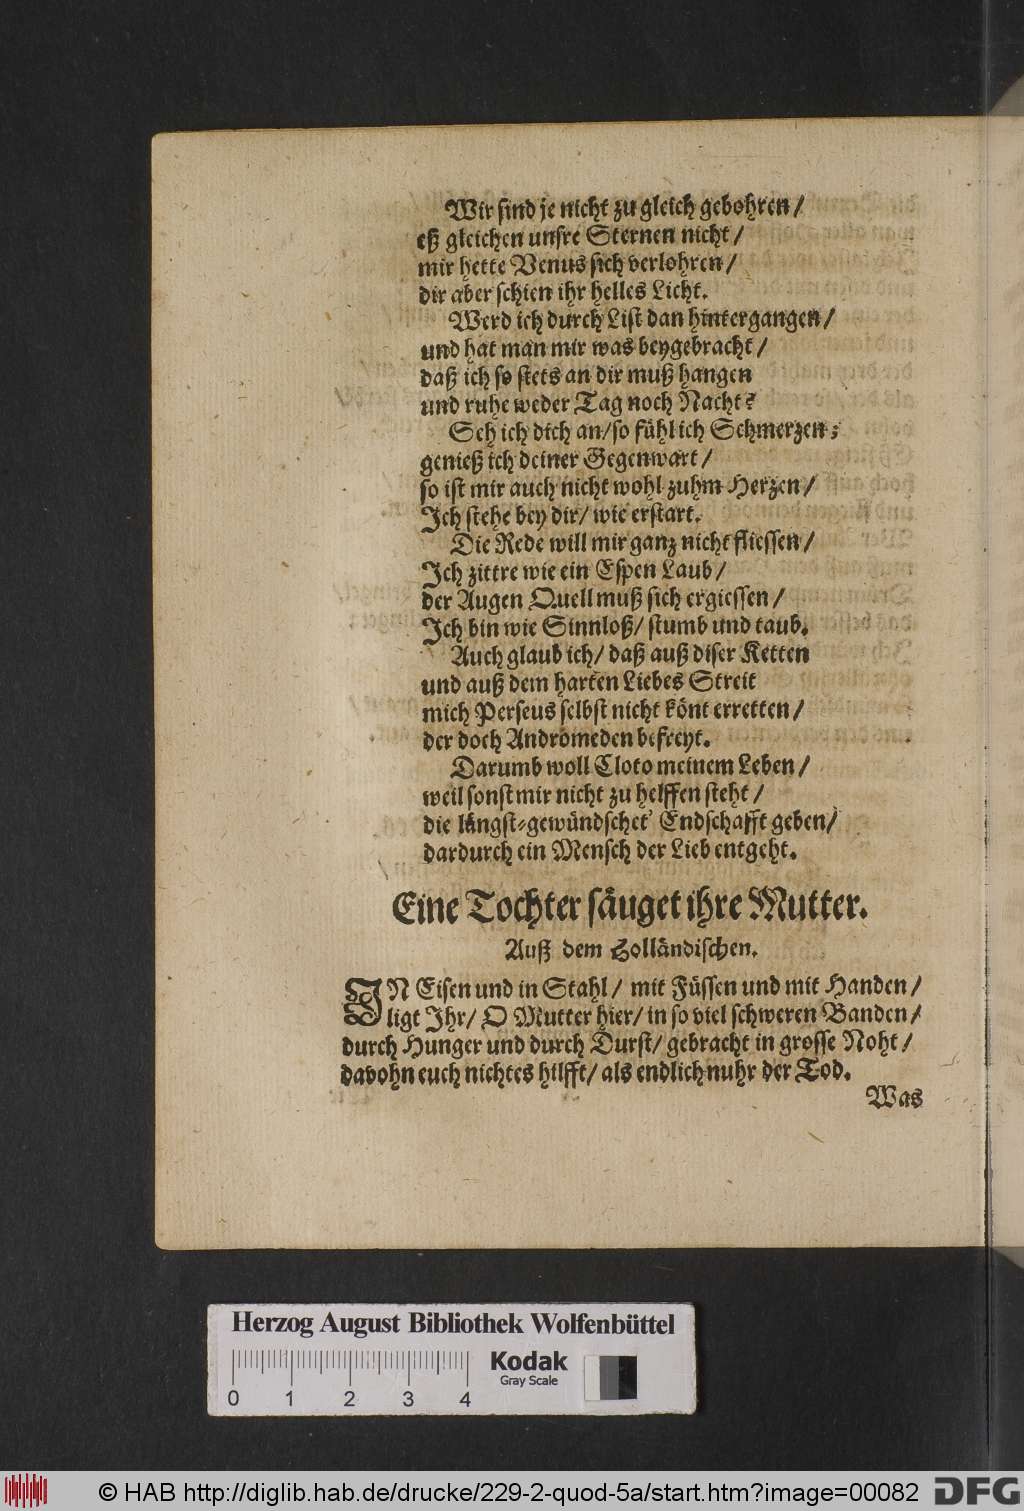 Wir sind je nicht zu gleich gebohren /
eß gleichen unsre Sternen nicht /
mir hette Venus sich verlohren /
dir aber schien ihr helles Licht.
Werd ich durch List dan hintergangen /
und hat man mir was beygebracht /
daß ich so stets an dir muß hangen
und ruhe weder Tag noch Nacht?
Seh ich dich an / so fühl ich Schmerzen;
genieß ich deiner Gegenwart /
so ist mir auch nicht wohl zuhm Herzen /
Ich stehe bey dir / wie erstart.
Die Rede will mir ganz nicht fliessen /
Ich zittre wie ein Espen Laub /
der Augen Quell muß sich ergiessen /
Ich bin wie Sinnloß / stumb und taub.
Auch glaub ich / daß auß diser Ketten
und auß dem harten Liebes Streit
mich Perseus selbst nicht könt erretten /
der doch Andromeden befreyt.
Darumb woll Cloto meinem Leben /
weil sonst mir nicht zu helffen steht /
die längst-gewündschet' Endschafft geben /
dardurch ein Mensch der Lieb entgeht.
Eine Tochter säuget ihre Mutter.
Auß dem Holländischen.
IN Eisen und in Stahl / mit Füssen und mit Handen /
ligt Ihr / O Mutter hier / in so viel schweren Banden /
durch Hunger und durch Durst / gebracht in grosse Noht /
davohn euch nichtes hilfft / als endlich nuhr der Tod.
Was
Herzog August Bibliothek Wolfenbüttel
Kodak
Gray Scale
0 1 2 3 4
© HAB http://diglib.hab.de/drucke/229-2-quod-5a/start.htm?image=00082
DFG